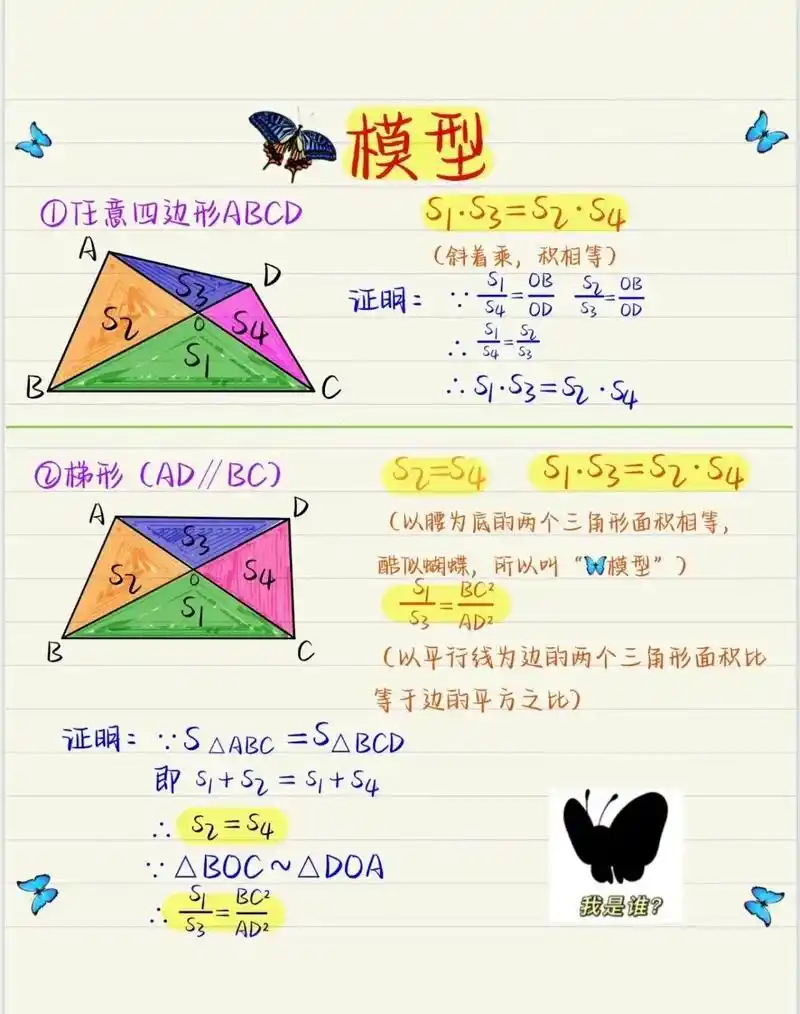 模型
①任意四边形ABCD
S₁·S₃=S₂·S₄
(斜着乘，积相等)
A
D
B
C
O
S₃
S₂
S₄
S₁
证明：∵ S₁/S₄=OB/OD S₂/S₃=OB/OD
∴ S₁/S₄=S₂/S₃
∴ S₁·S₃=S₂·S₄
②梯形（AD∥BC）
S₂=S₄ S₁·S₃=S₂·S₄
A
D
B
C
O
S₃
S₂
S₄
S₁
（以腰为底的两个三角形面积相等，
酷似蝴蝶，所以叫“🦋模型”）
S₁/S₃=BC²/AD²
（以平行线为边的两个三角形面积比
等于边的平方之比）
证明：∵S△ABC=S△BCD
即 S₁+S₂=S₁+S₄
∴ S₂=S₄
∵△BOC~△DOA
∴ S₁/S₃=BC²/AD²
我是谁?